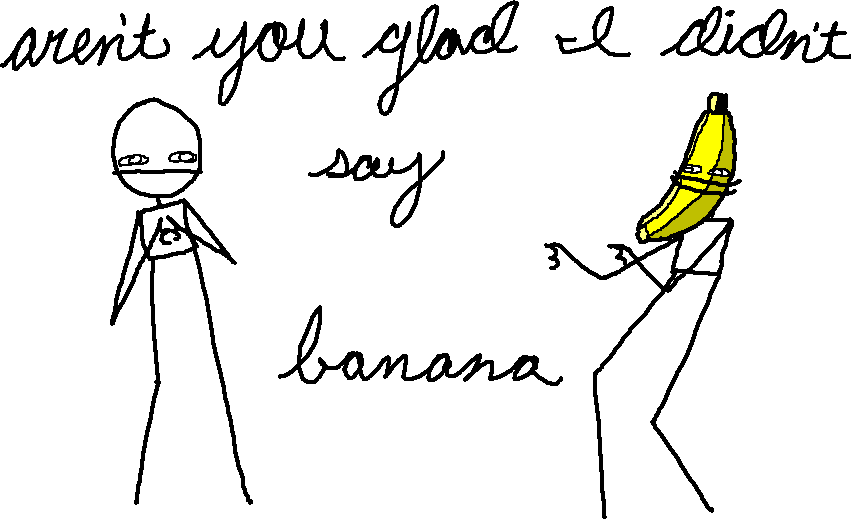 aren't you glad I didn't
say
banana